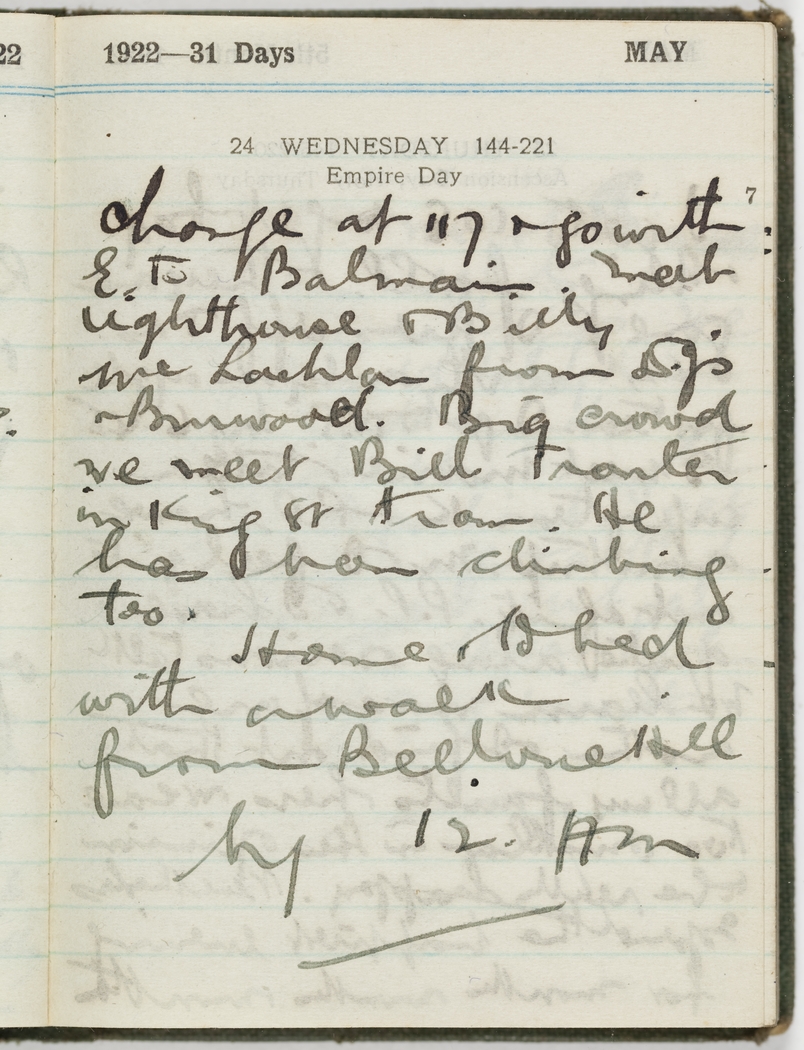 22
1922—31 Days MAY
24 WEDNESDAY 144-221
Empire Day
7
change at 117 & go with
E. to Balmain. meet
Lighthouse & Billy
McLachlan from
& Burwood. Big crowd
we meet Bill Tranter
in King St tram. He
has been climbing
too.
Home & Bed
with a walk
from Bellevue Hill
by 12. Am